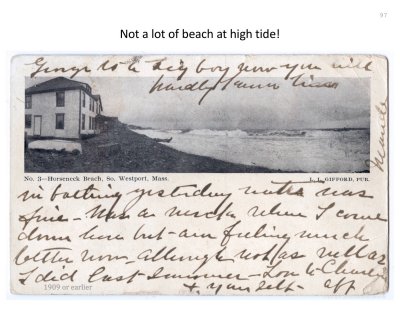 97
Not a lot of beach at high tide!
George is a big boy now you will
hardly know him
No. 3—Horseneck Beach, So. Westport, Mass.
L. L. GIFFORD, PUB.
in bathing yesterday water was
fine - Was a when I came
down here but am feeling much
better now - although not as well as
I did last summer - Love to
+ yourself -
1909 or earlier